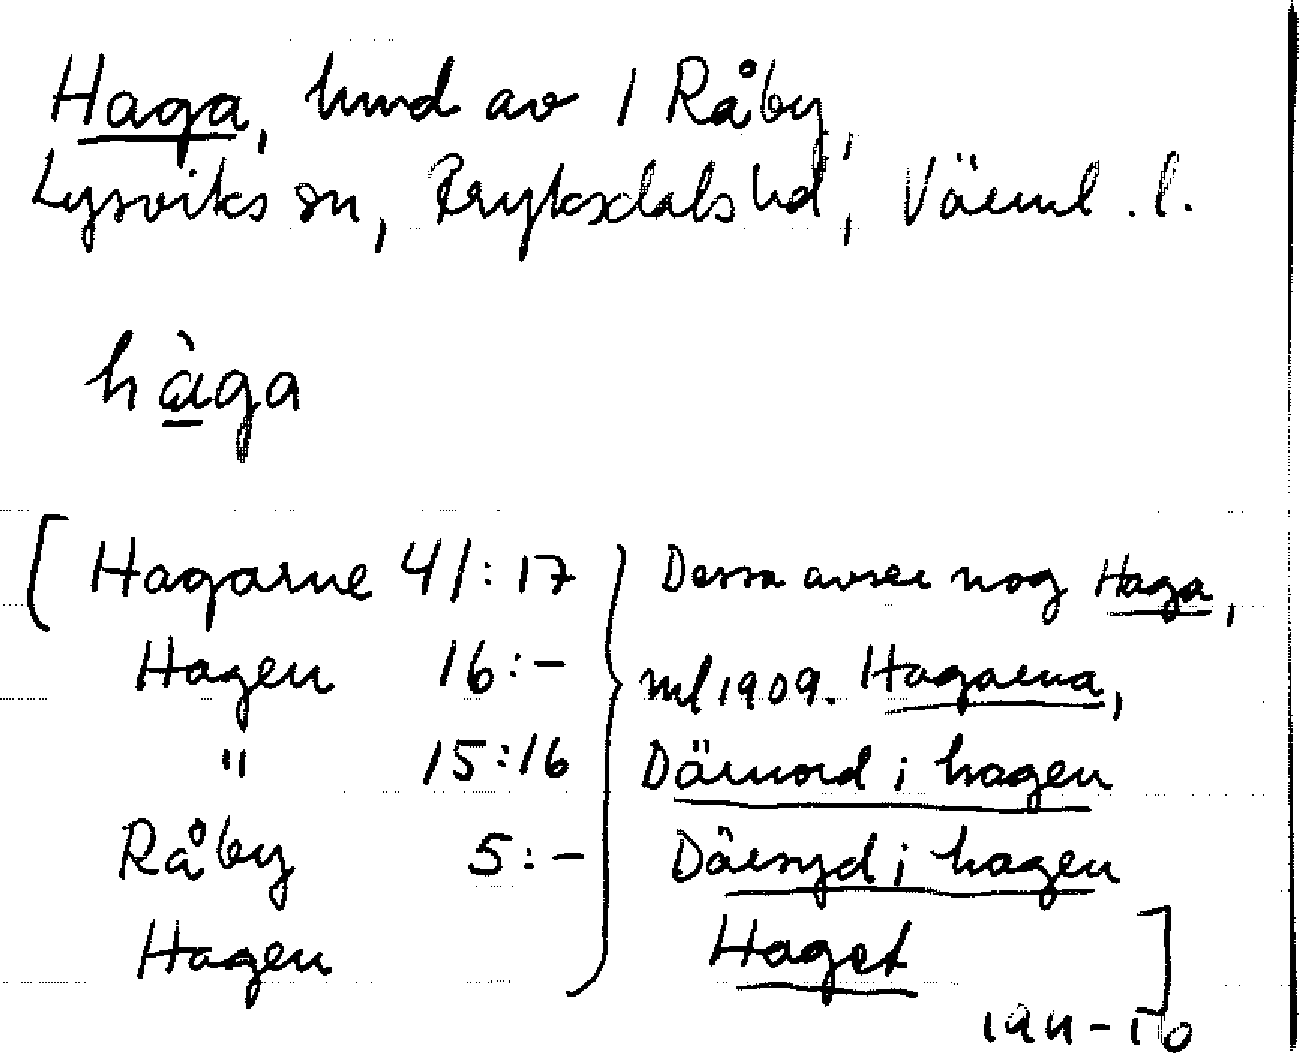 Haga, hmd av 1 Råby,
Lysviks sn, Fryksdals hd, Värml. l.
hàga
[ Hagarne 41:17 } Dessa avser nog Haga,
Hagen 16:- ml 1909. Hagarna,
" 15:16 Därnord i hagen
Råby 5:- Därsyd i hagen
Hagen Haget ]